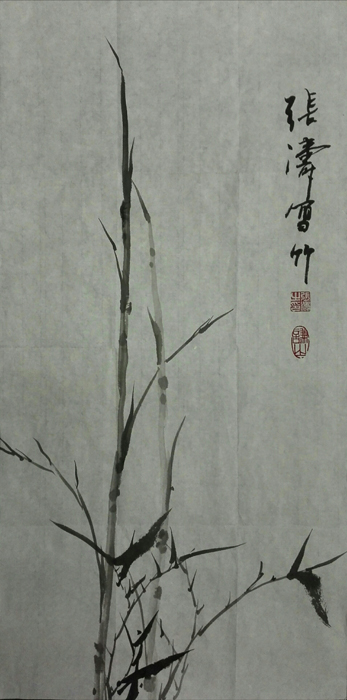 張濤寫竹